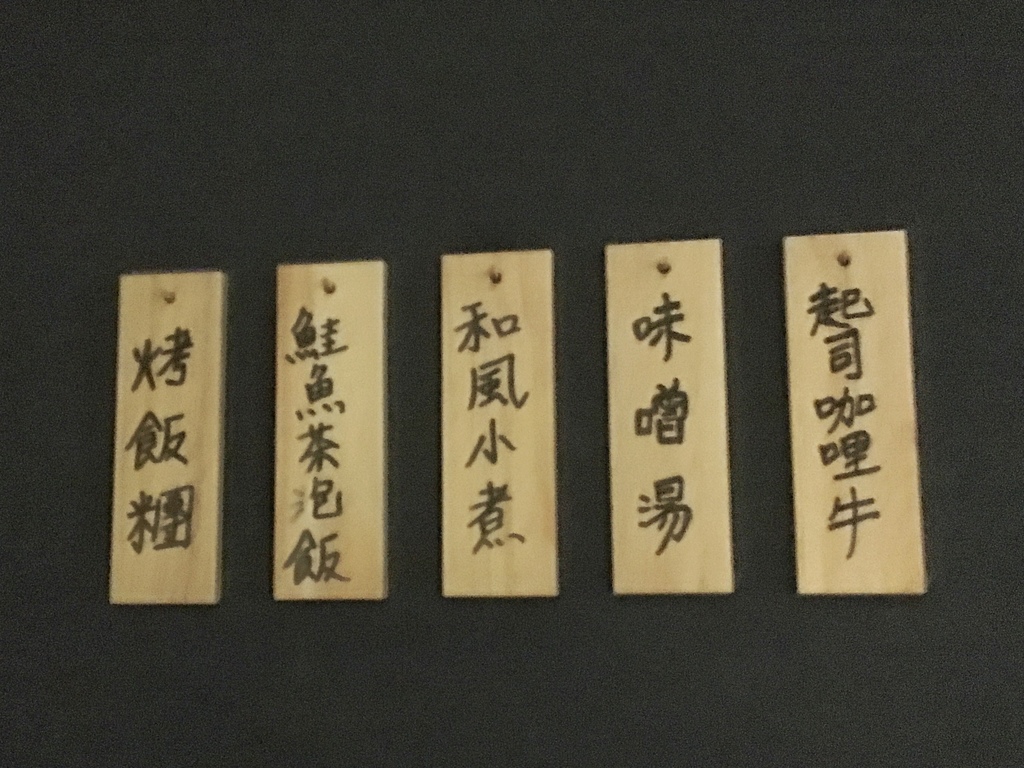 烤飯糰
鮭魚茶泡飯
和風小煮
味噌湯
起司咖哩牛